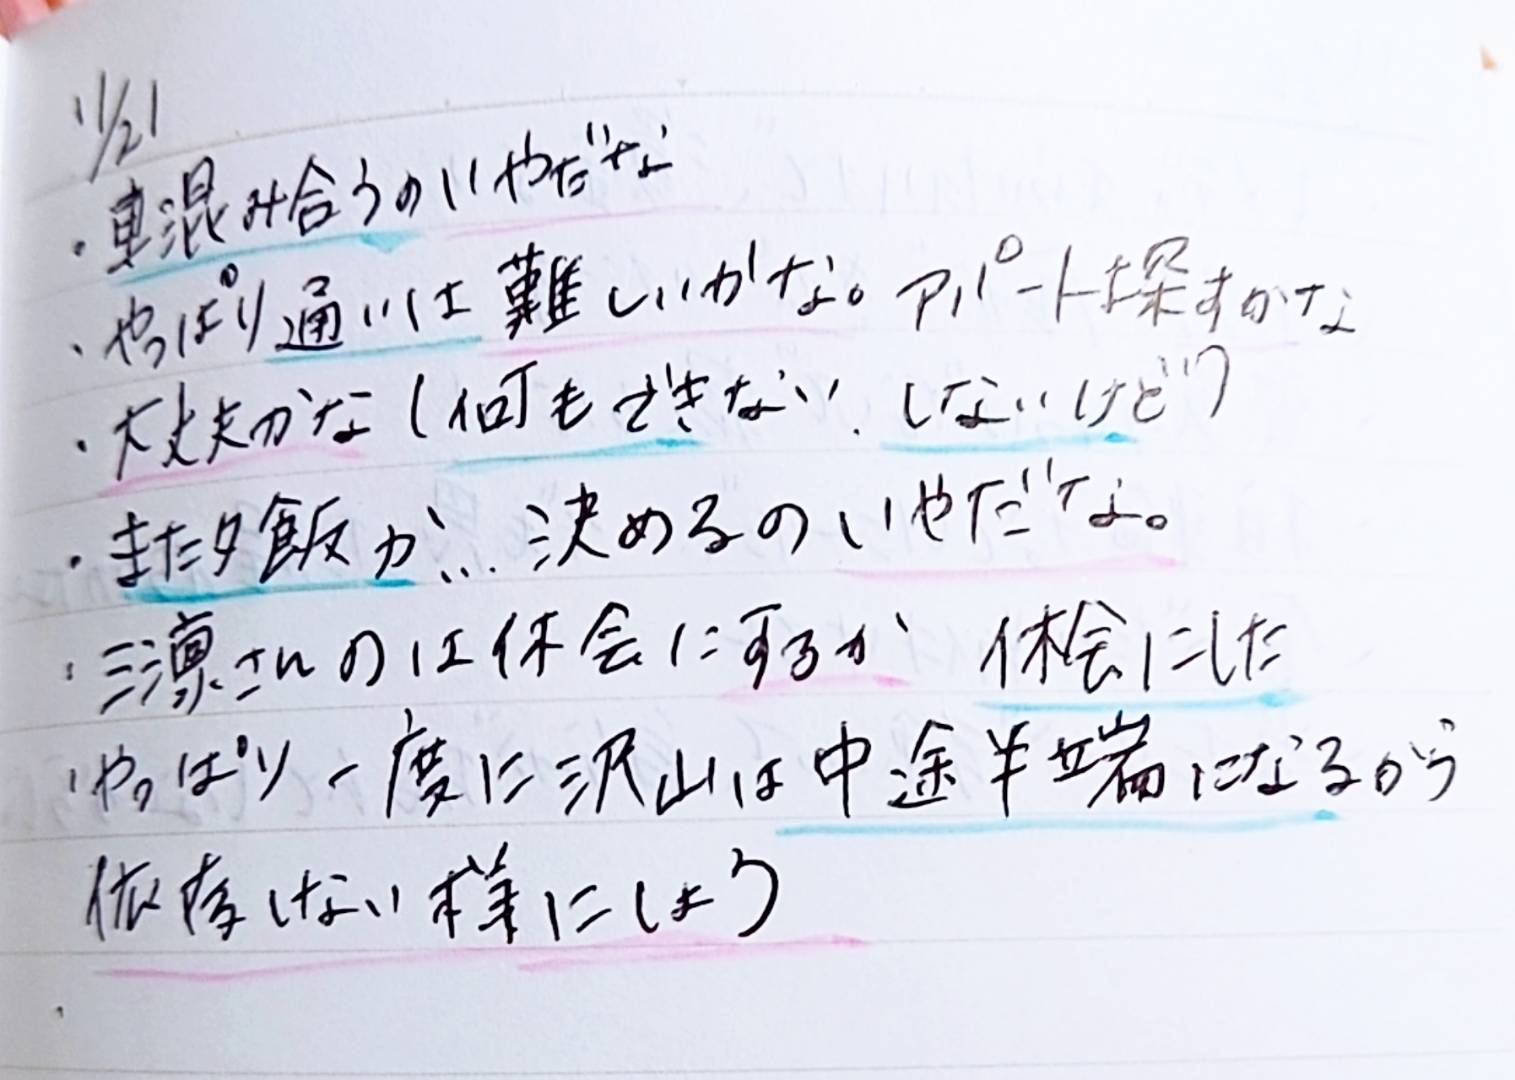 11/21
・車混み合うのいやだな
・やっぱり通いは難しいかな。アパートを探すかな
・大丈夫かな(何もできない、しないけど)
・また夕飯か…決めるのいやだな。
・三凛さんのは休会にするか 休会にした
・やっぱり一度に沢山は中途半端になるから
依存しない様にしよう